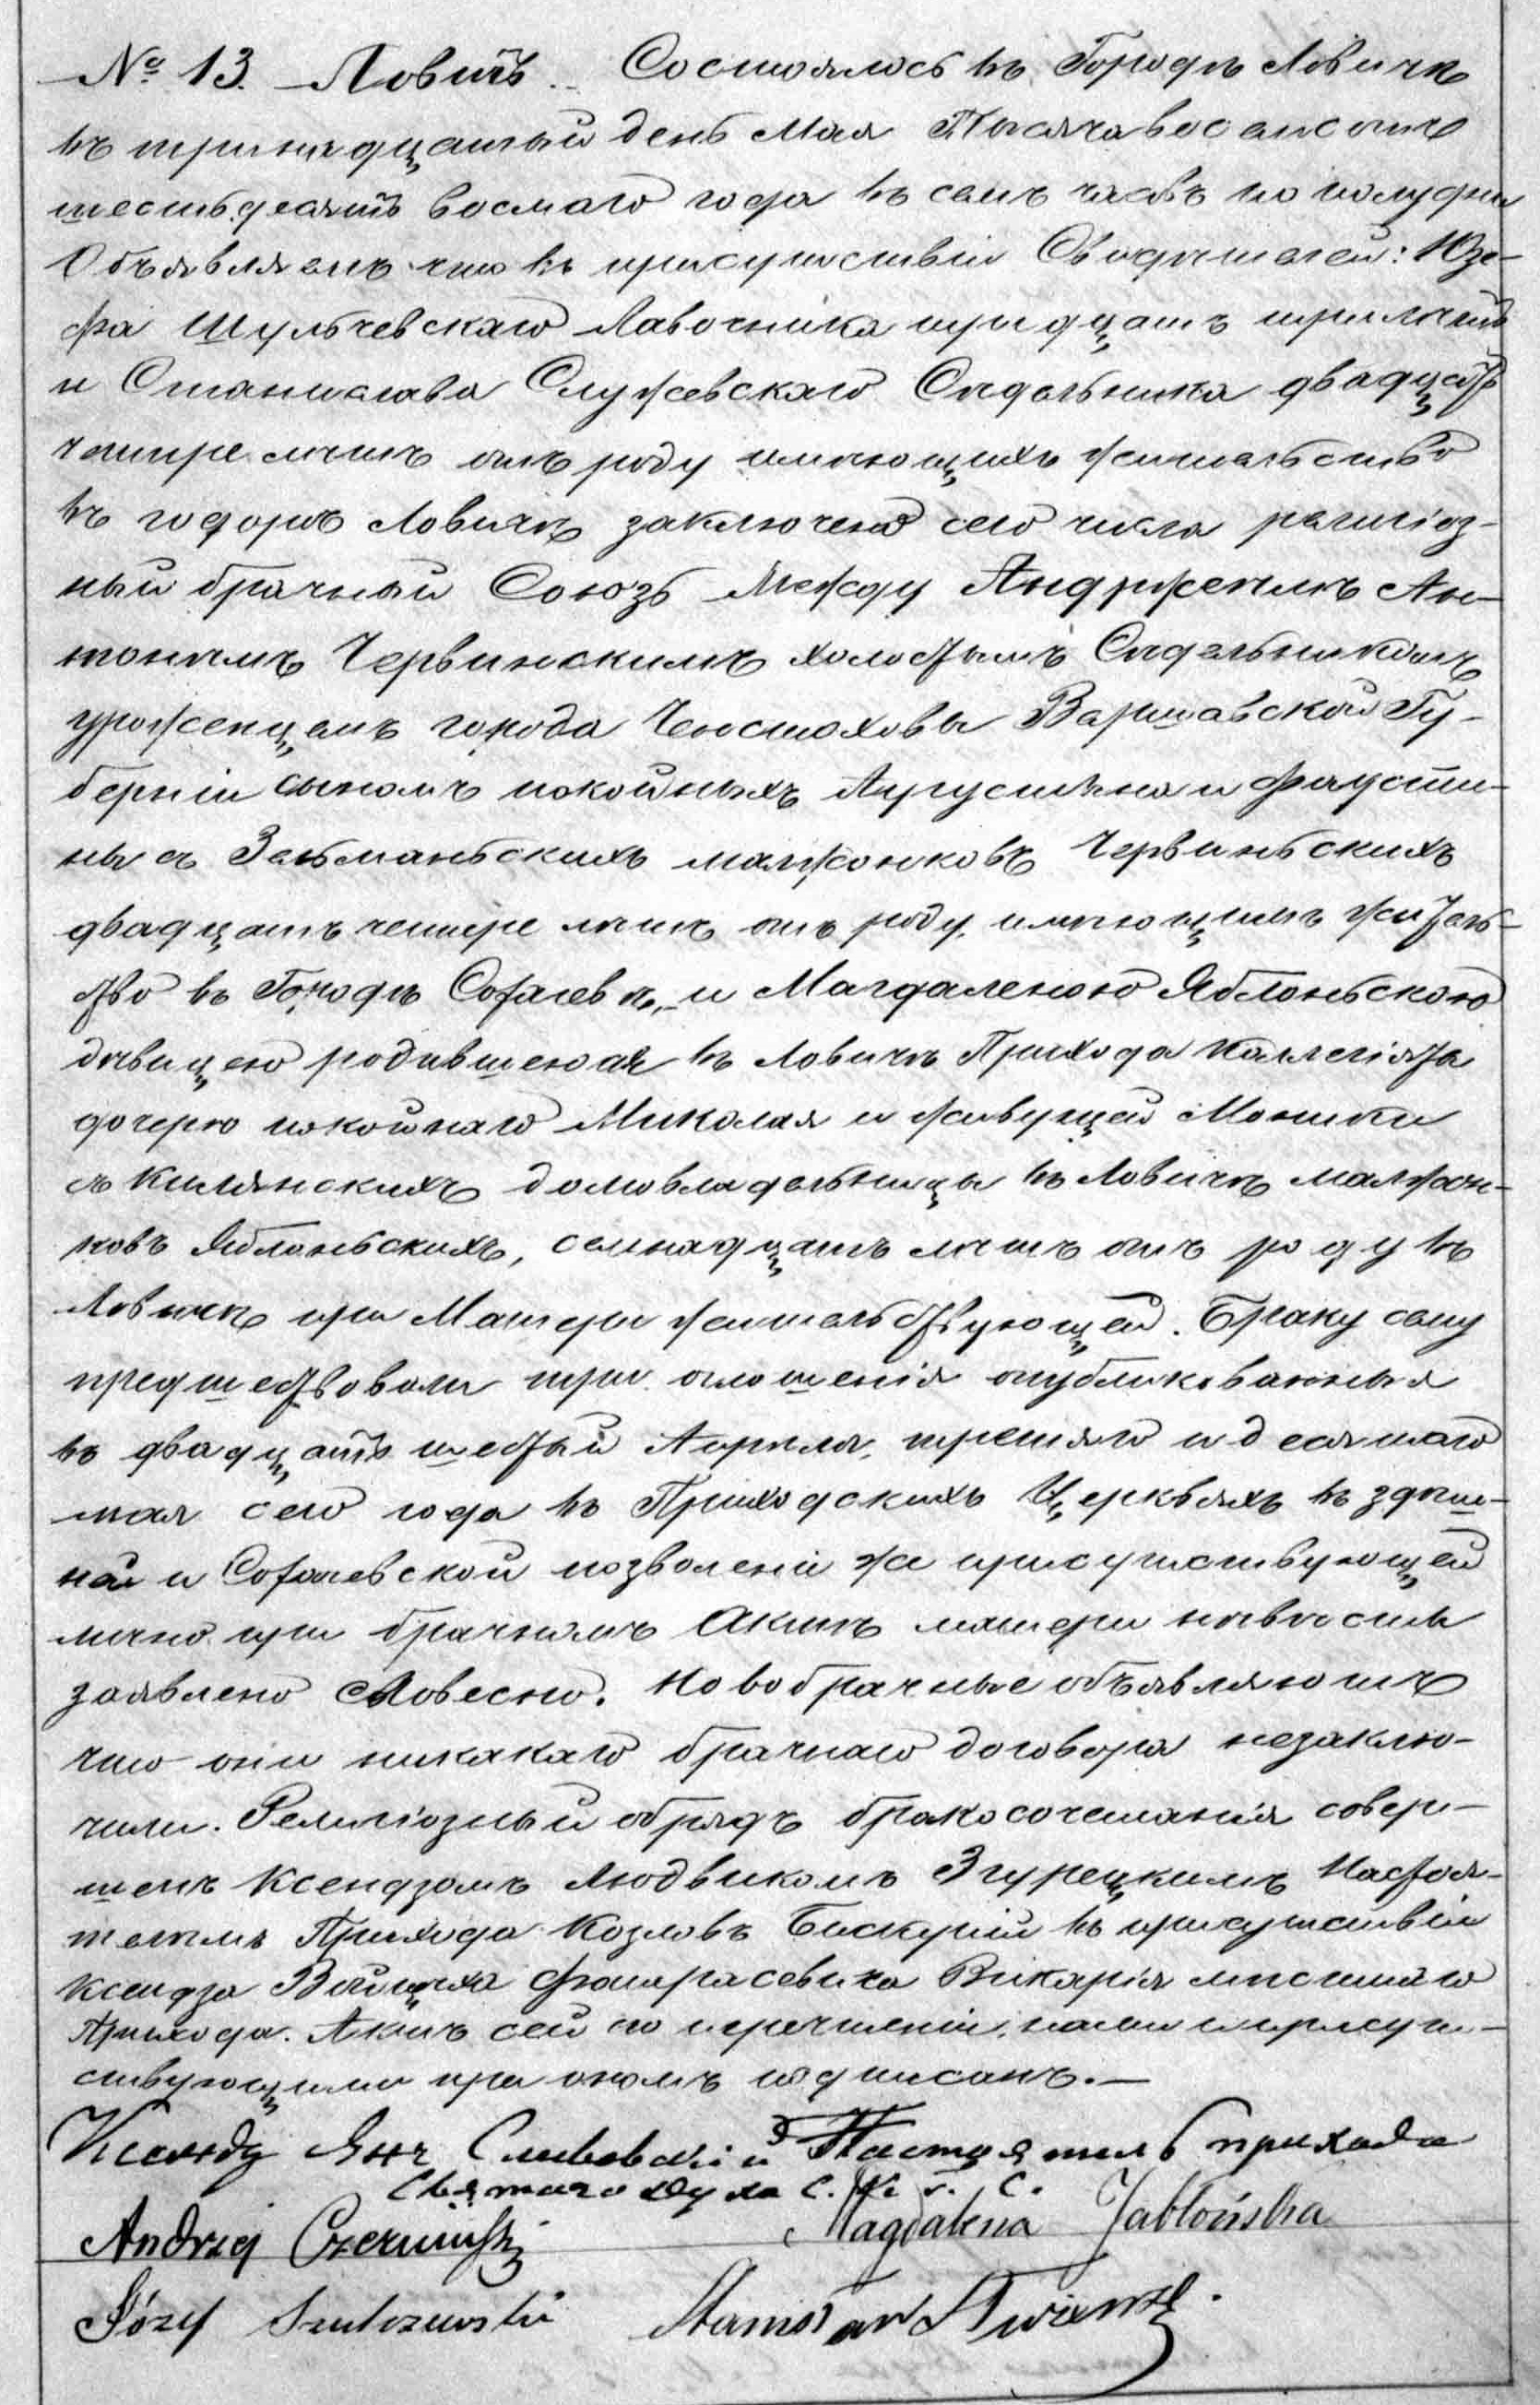 № 13. Ловичь. Состоялось въ Городѣ Ловичѣ
въ тринадцатый день Мая Тысяча восемсотъ
шестьдесятъ восмаго года въ семъ часовъ по полудни
Объявляемъ что въ присутствіи Свидѣтелей: Юзе-
фа Шульчевскаго Лавочника тридцать три лѣтъ
и Станислава Служевскаго Сѣдельника двадцать
четыре лѣтъ отъ роду имѣющихъ жительство
въ городѣ Ловичѣ заключенъ сего числа религіоз-
ный брачный Союзъ Между Андржеемъ Ан-
тонимъ Червинскимъ холостымъ Сѣдельникомъ
урожденцемъ города Ченстоховы Варшавской Гу-
берніи сыномъ покойныхъ Августына и Фаусти-
ны съ Зельманьскихъ малжонковъ Червиньскихъ
двадцать четыре лѣтъ отъ роду, имѣющимъ житель-
ство въ Городѣ Сохачевѣ, и Магдаленою Яблоньскою
дѣвицею родившеюся въ Ловичѣ Прихода Коллегіяты
дочерью покойнаго Миколая и живущей Моники
съ Килянскихъ домовладѣльницы въ Ловичѣ малжон-
ковъ Яблоньскихъ, семнадцать лѣтъ отъ роду въ
Ловичѣ при Матери жительствующей. Браку сему
предшествовали три оглошенія опубликованныя
въ двадцать шестый Апрѣля, третяго и десятаго
мая сего года въ Приходскихъ Церквяхъ въ здѣш-
ной и Сохачевской позволеніе же присутствующей
лично при брачномъ Актѣ матери невѣсты
заявлено словесно. Новобрачные объявляютъ
что они никакаго брачнаго договора незаклю-
чили. Религіозный обрядъ бракосочетанія совер-
шенъ Ксендзомъ Людвикомъ Згурецкимъ Настоя-
телемъ Прихода Козловъ Бискупій въ присутствіи
Ксендза Войцѣха Викарія мѣстнаго
Прихода. Актъ сей по прочтеніи, нами и присут-
ствующими при ономъ подписанъ.—
Ксендзъ Янъ Настоятель прихода
Святаго Духа
Andrzej Czerwiński Magdalena Jabłońska
Józef Szulczewski Stanisław